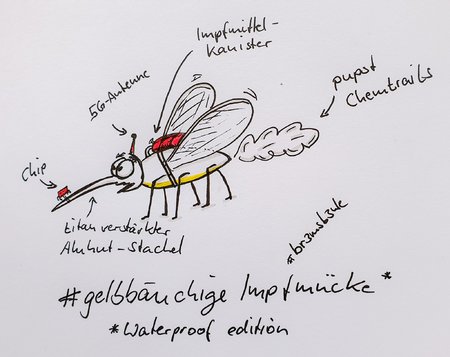 Impfmittel-
Kanister
5G-Antenne
pupst
Chemtrails
Chip
titanverstärkter
Aluhut-Stachel
#gelbbäuchige Impfmücke*
*Waterproof edition